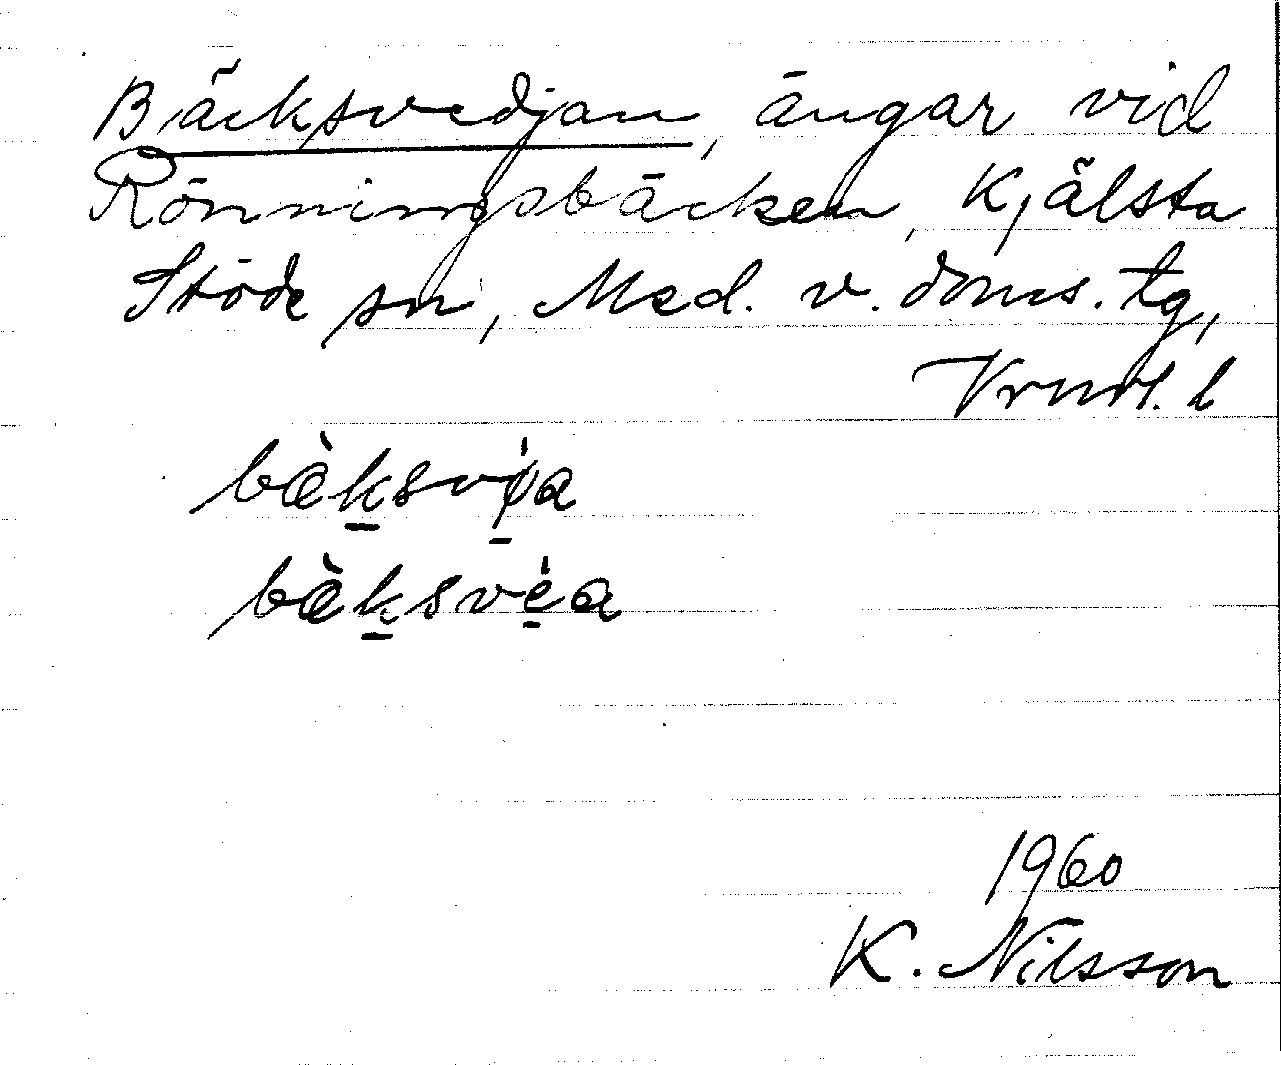 Bäcksvedjan, ängar vid
Rönningsbäcken, Kjälsta
Stöde sn, Med. v. doms. tg,
Vrnl. l
bæ̀k̠svǿ̠a
bæ̀k̠své̠a
1960
K. Nilsson